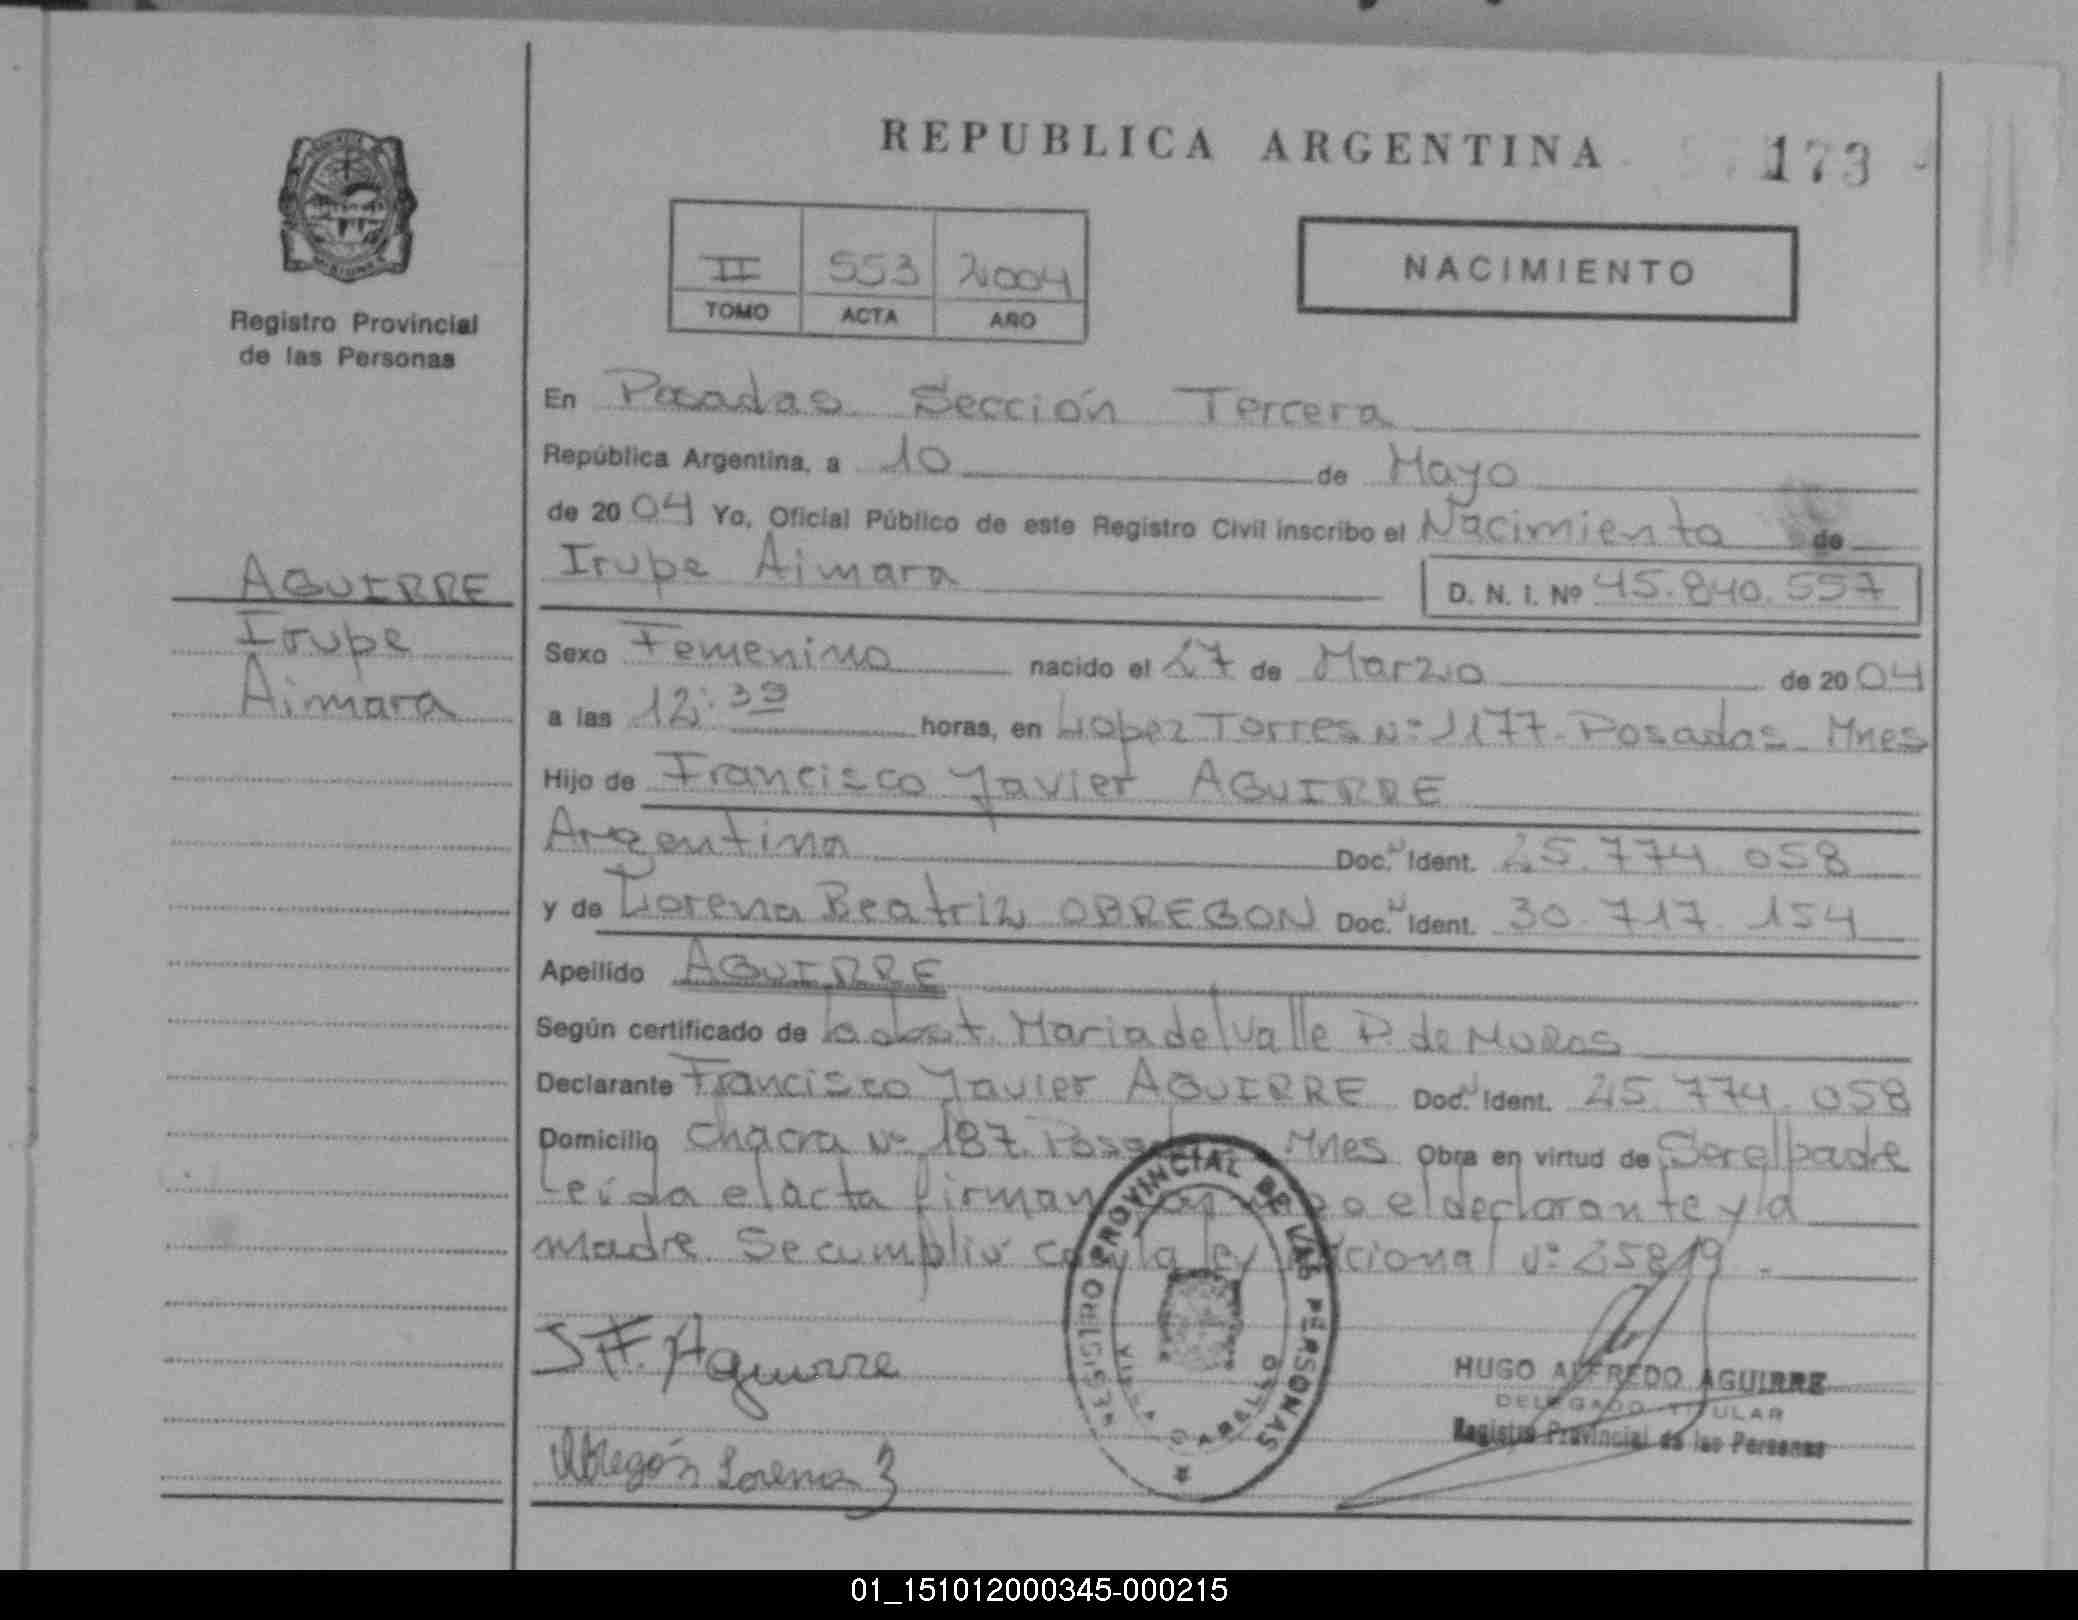 REPUBLICA ARGENTINA
173
II 553 2004
TOMO ACTA AÑO
NACIMIENTO
Registro Provincial
de las Personas
En Posadas Sección Tercera
República Argentina, a 10 de Mayo
de 2004 Yo, Oficial Público de este Registro Civil inscribo el Nacimiento de
Irupe Aimara
D. N. I. Nº 45.840.557
AGUIRRE
Irupe
Aimara
Sexo Femenino nacido el 27 de Marzo de 2004
a las 12:39 horas, en Lopez Torres Nº 1177. Posadas Mnes
Hijo de Francisco Javier AGUIRRE
Argentina Doc. Ident. 25.774.058
y de Lorena Beatriz OBREGON Doc. Ident. 30.717.154
Apellido AGUIRRE
Según certificado de la obst. Maria del Valle P. de
Declarante Francisco Javier AGUIRRE Doc. Ident. 25.774.058
Domicilio Chacra Nº 187. Posadas Mnes Obra en virtud de Ser el padre
Leída el acta firman el declarante y la
madre. Se cumplió con la ley Nacional Nº 25819.
J F. Aguirre
Obregón Lorena B
REGISTRO PROVINCIAL DE LAS PERSONAS
VILLA CABELLO
HUGO ALFREDO AGUIRRE
DELEGADO TITULAR
Registro Provincial de las Personas
01_151012000345-000215